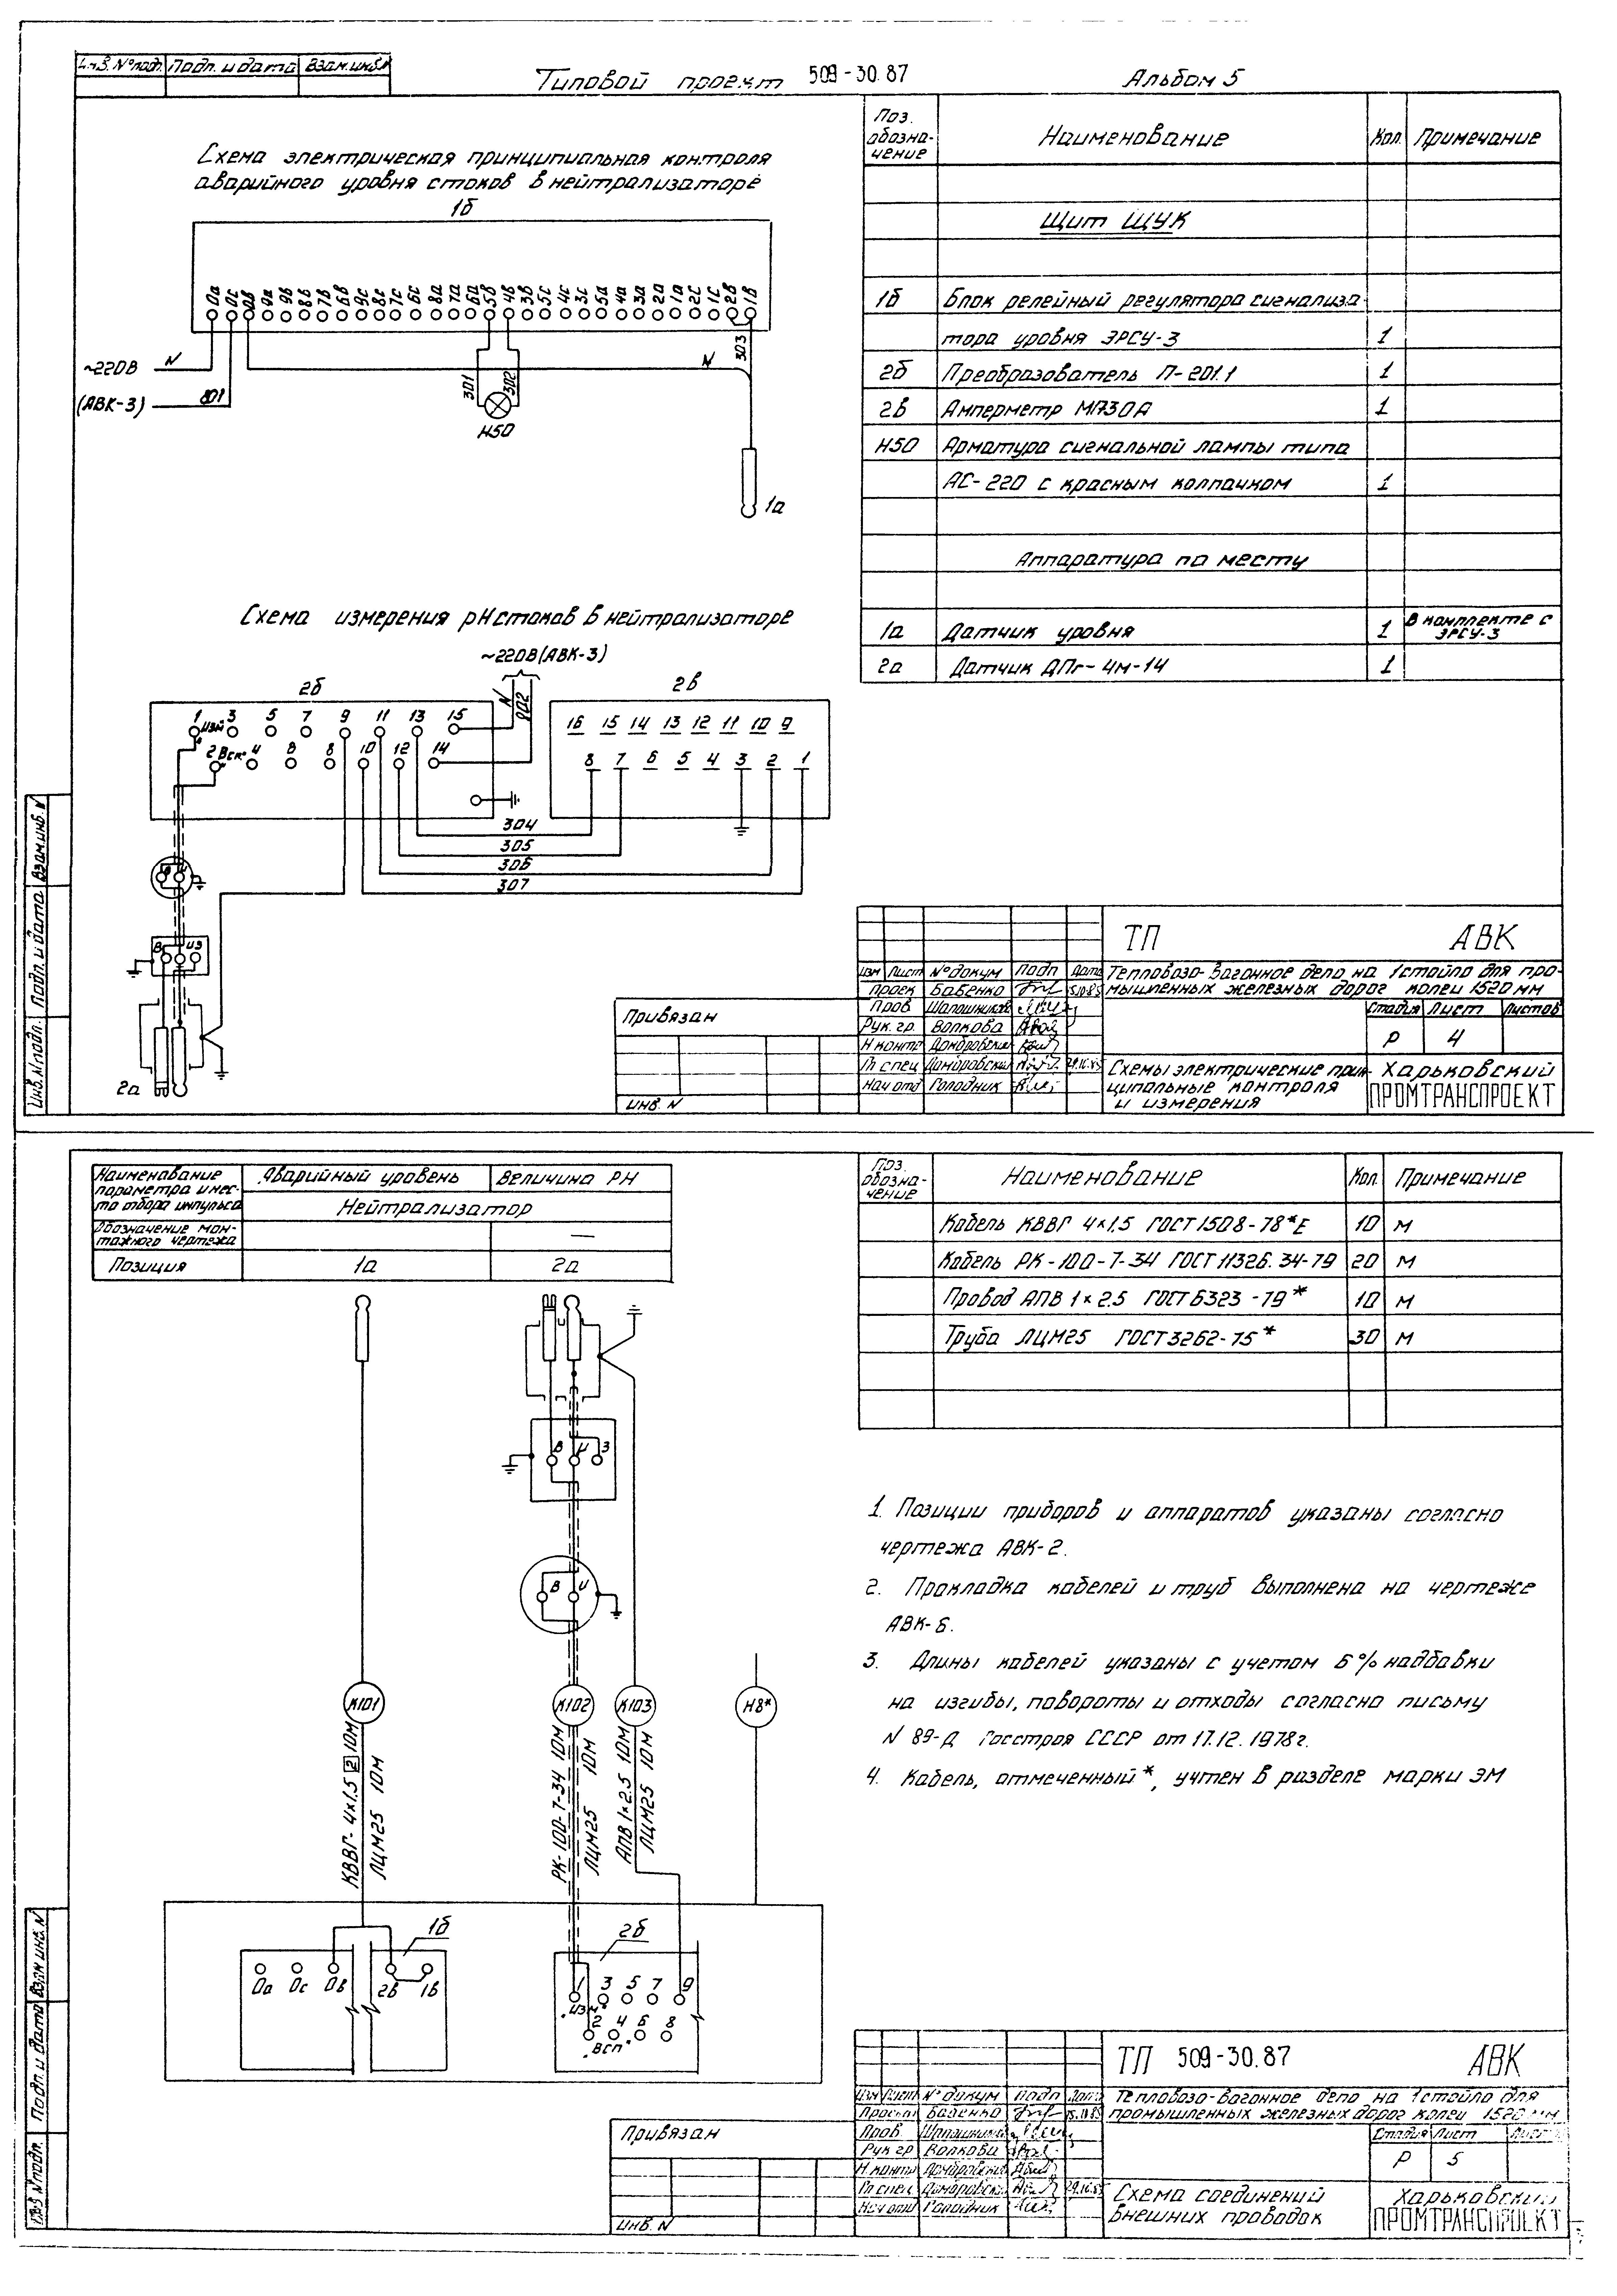 Инв. № подл. Подп. и дата Взам. инв. №
Типовой проект 509-30.87 Альбом 5
Схема электрическая принципиальная контроля
аварийного уровня стоков в нейтрализаторе
1б
0а 0с 0в 9а 9в 8в 7в 6в 9с 8с 7с 6с 8а 7а 6а 5в 4в 3в 5с 4с 3с 5а 4а 3а 2а 1а 2с 1с 2в 1в
~220В N
(АВК-3) 801
301 302
Н50
N 303
1а
Схема измерения рН стоков в нейтрализаторе
~220В (АВК-3)
N 802
2б 2в
1 3 5 7 9 11 13 15
"Изм"
2 Вск" 4 8 8 10 12 14
16 15 14 13 12 11 10 9
8 7 6 5 4 3 2 1
304
305
306
307
В И З
2а
Поз. обозначение Наименование Кол. Примечание
Щит ЩУК
1б Блок релейный регулятора сигнализа-
тора уровня ЭРСУ-3 1
2б Преобразователь П-201.1 1
2в Амперметр М1730А 1
Н50 Арматура сигнальной лампы типа
АС-220 с красным колпачком 1
Аппаратура по месту
1а Датчик уровня 1 В комплекте с ЭРСУ-3
2а Датчик ДПг-4м-14 1
Взам. инв. №
Подп. и дата
Инв. № подл.
ТП АВК
Изм Лист № докум Подп Дата
Тепловозо-вагонное депо на 1 стойло для про-
мышленных железных дорог колеи 1520 мм
Проек Бабенко 15.10.85
Пров Шапошников
Рук. гр. Волкова
Н контр Домбровский
Гл спец Домбровский
Нач отд Голодник
Привязан
Инв. N
Стадия Лист Листов
Р 4
Схемы электрические прин-
ципиальные контроля
и измерения
Харьковский
ПРОМТРАНСПРОЕКТ
Наименование
параметра и мес-
то отбора импульса
Аварийный уровень Величина РН
Нейтрализатор
Обозначение мон-
тажного чертежа —
Позиция 1а 2а
И
В И З
В И
К101 К102 К103 Н8*
КВВГ-4×1,5 2 10м
ЛЦМ25 10м
РК-100-7-34 10м
ЛЦМ25 10м
АПВ 1×2.5 10м
ЛЦМ25 10м
1б 2б
0а 0с 0в 2в 1в
1 3 5 7 9
"Изм"
2 4 6 8
"ВСП"
Поз. обозна-чение Наименование Кол. Примечание
Кабель КВВГ 4×1,5 ГОСТ 1508-78*Е 10 м
Кабель РК-100-7-34 ГОСТ 11326.34-79 20 м
Провод АПВ 1×2.5 ГОСТ 6323-79* 10 м
Труба ЛЦМ25 ГОСТ 3262-75* 30 м
1. Позиции приборов и аппаратов указаны согласно
чертежа АВК-2.
2. Прокладка кабелей и труб выполнена на чертеже
АВК-6.
3. Длины кабелей указаны с учетом 6% надбавки
на изгибы, повороты и отходы согласно письму
N 89-Д Госстроя СССР от 17.12.1978г.
4. Кабель, отмеченный *, учтен в разделе марки ЭМ
Взам инв. N
Подп. и дата
Инв. N подл.
ТП 509-30.87 АВК
Изм Лист № докум Подп Дата
Тепловозо-вагонное депо на 1 стойло для
промышленных железных дорог колеи 1520 мм
Бабенко 15.10.85
Пров. Шапошников
Рук гр Волкова
Н. контр Домбровский
Гл спец Домбровский
Нач отд Голодник
Привязан
Инв. N
Стадия Лист
Р 5
Схема соединений
внешних проводок
Харьковский
ПРОМТРАНСПРОЕКТ